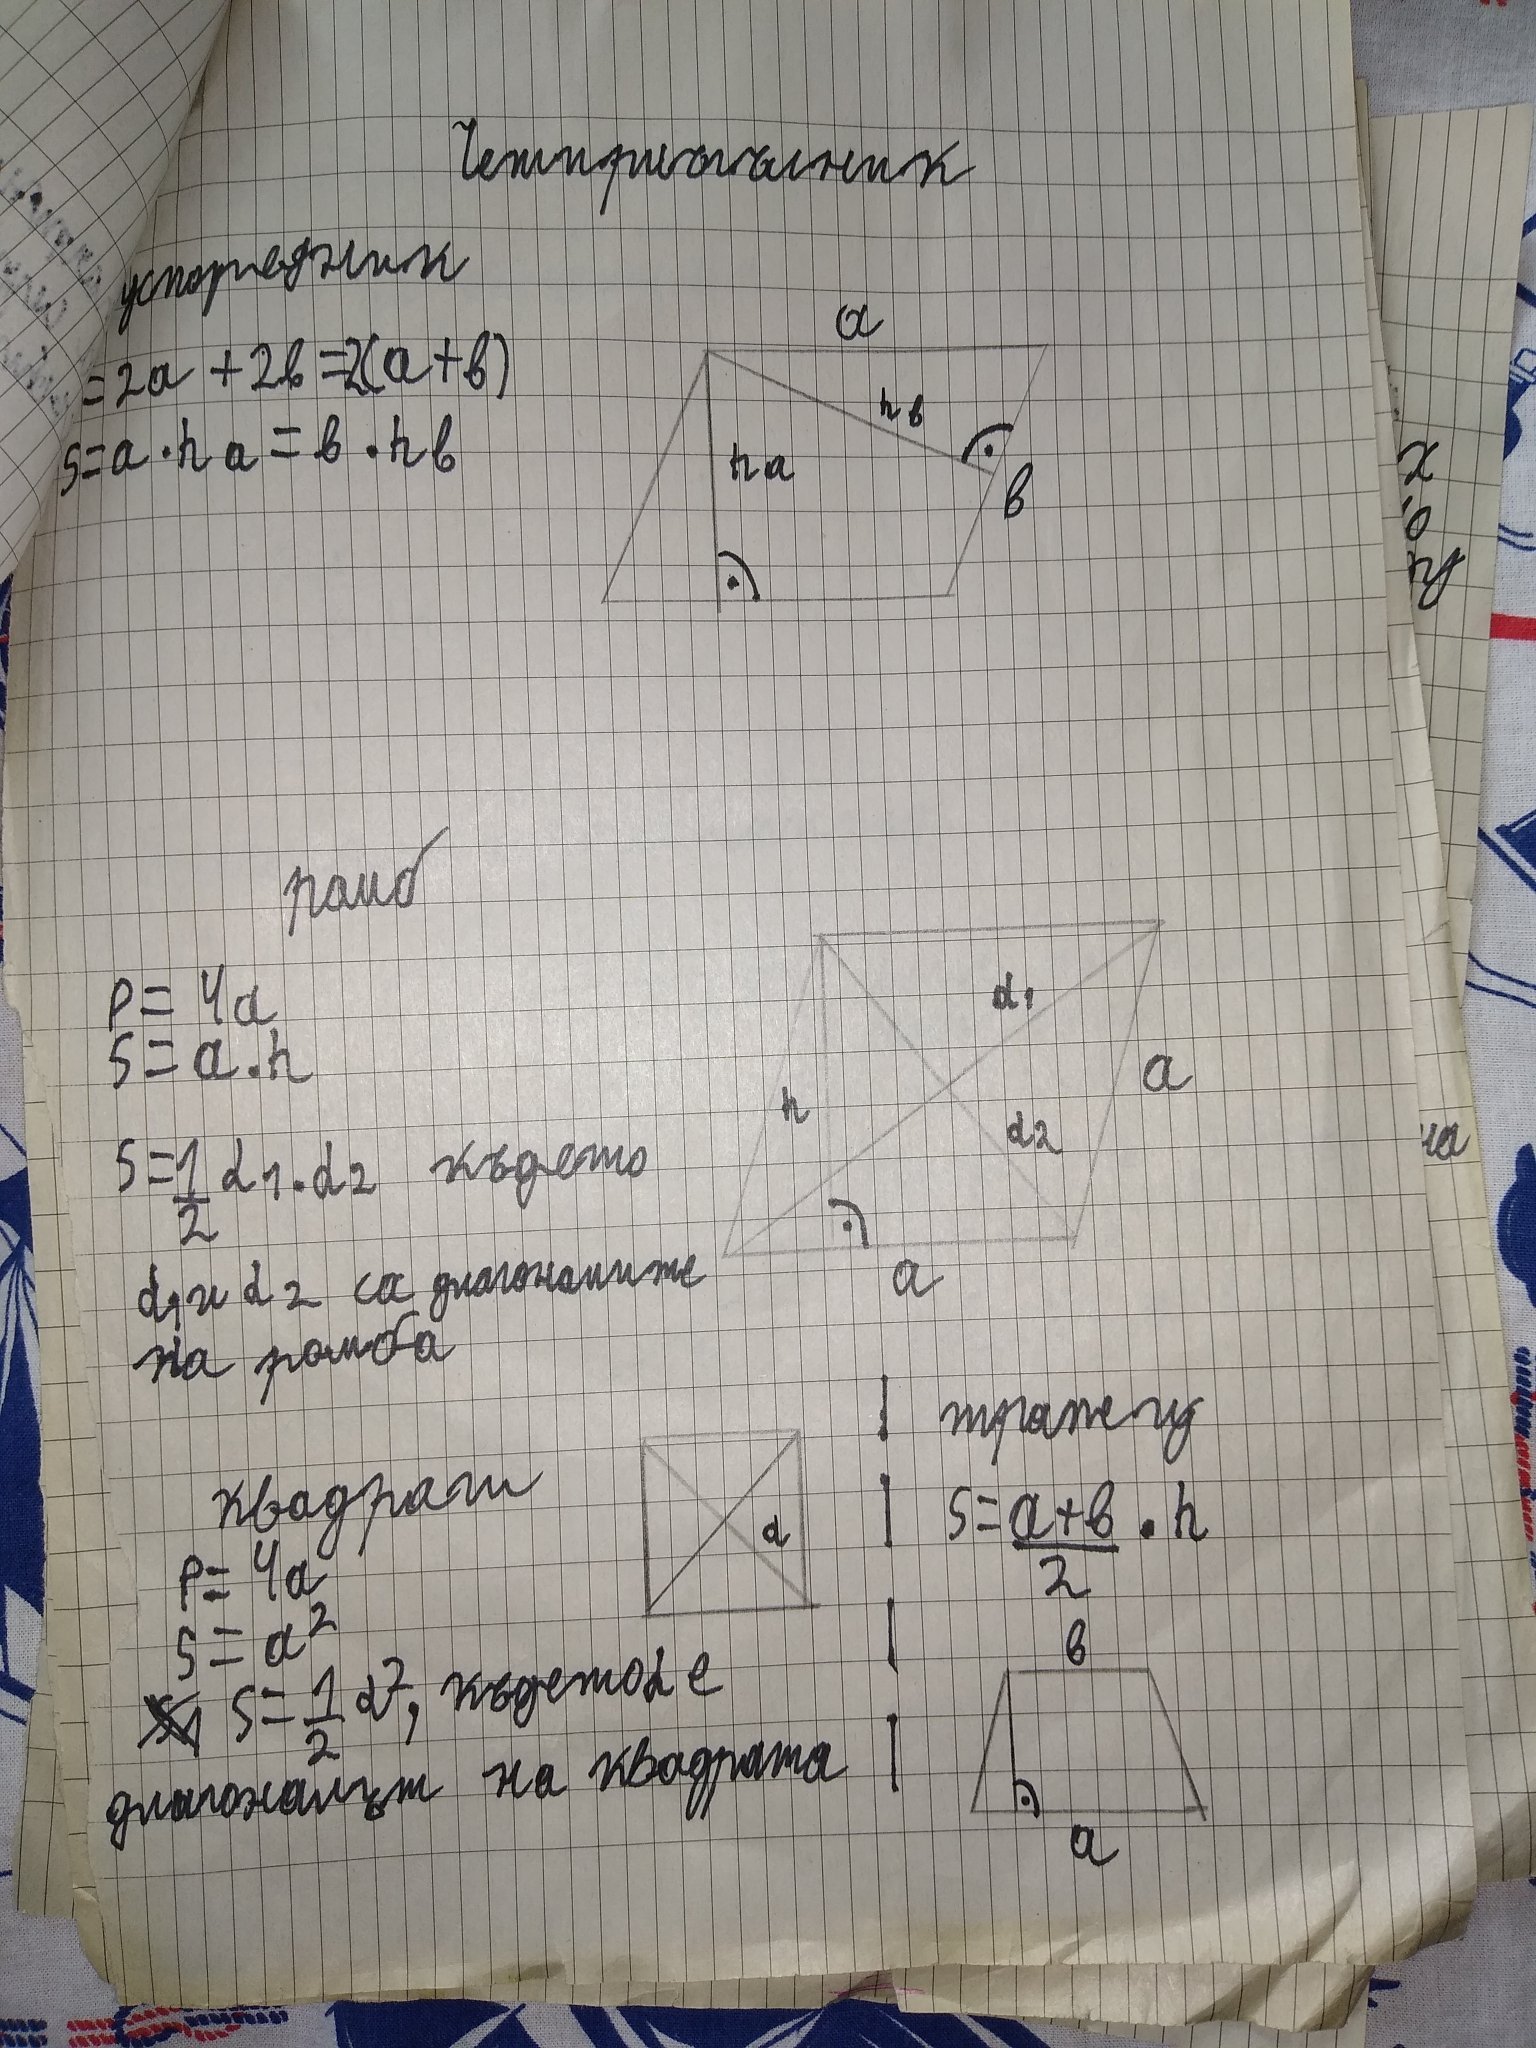 Четириъгълник
успоредник
=2a+2b=2(a+b)
S=a.ha=b.hb
a
hb
ha
b
ромб
P=4a
S=a.h
S=1/2 d1.d2 където
d1 и d2 са диагоналите
на ромба
d1
a
h
d2
a
квадрат
P=4a
S=a²
S=1/2 d², където d е
диагоналът на квадрата
d
трапец
S=a+b/2 . h
b
a
x
на